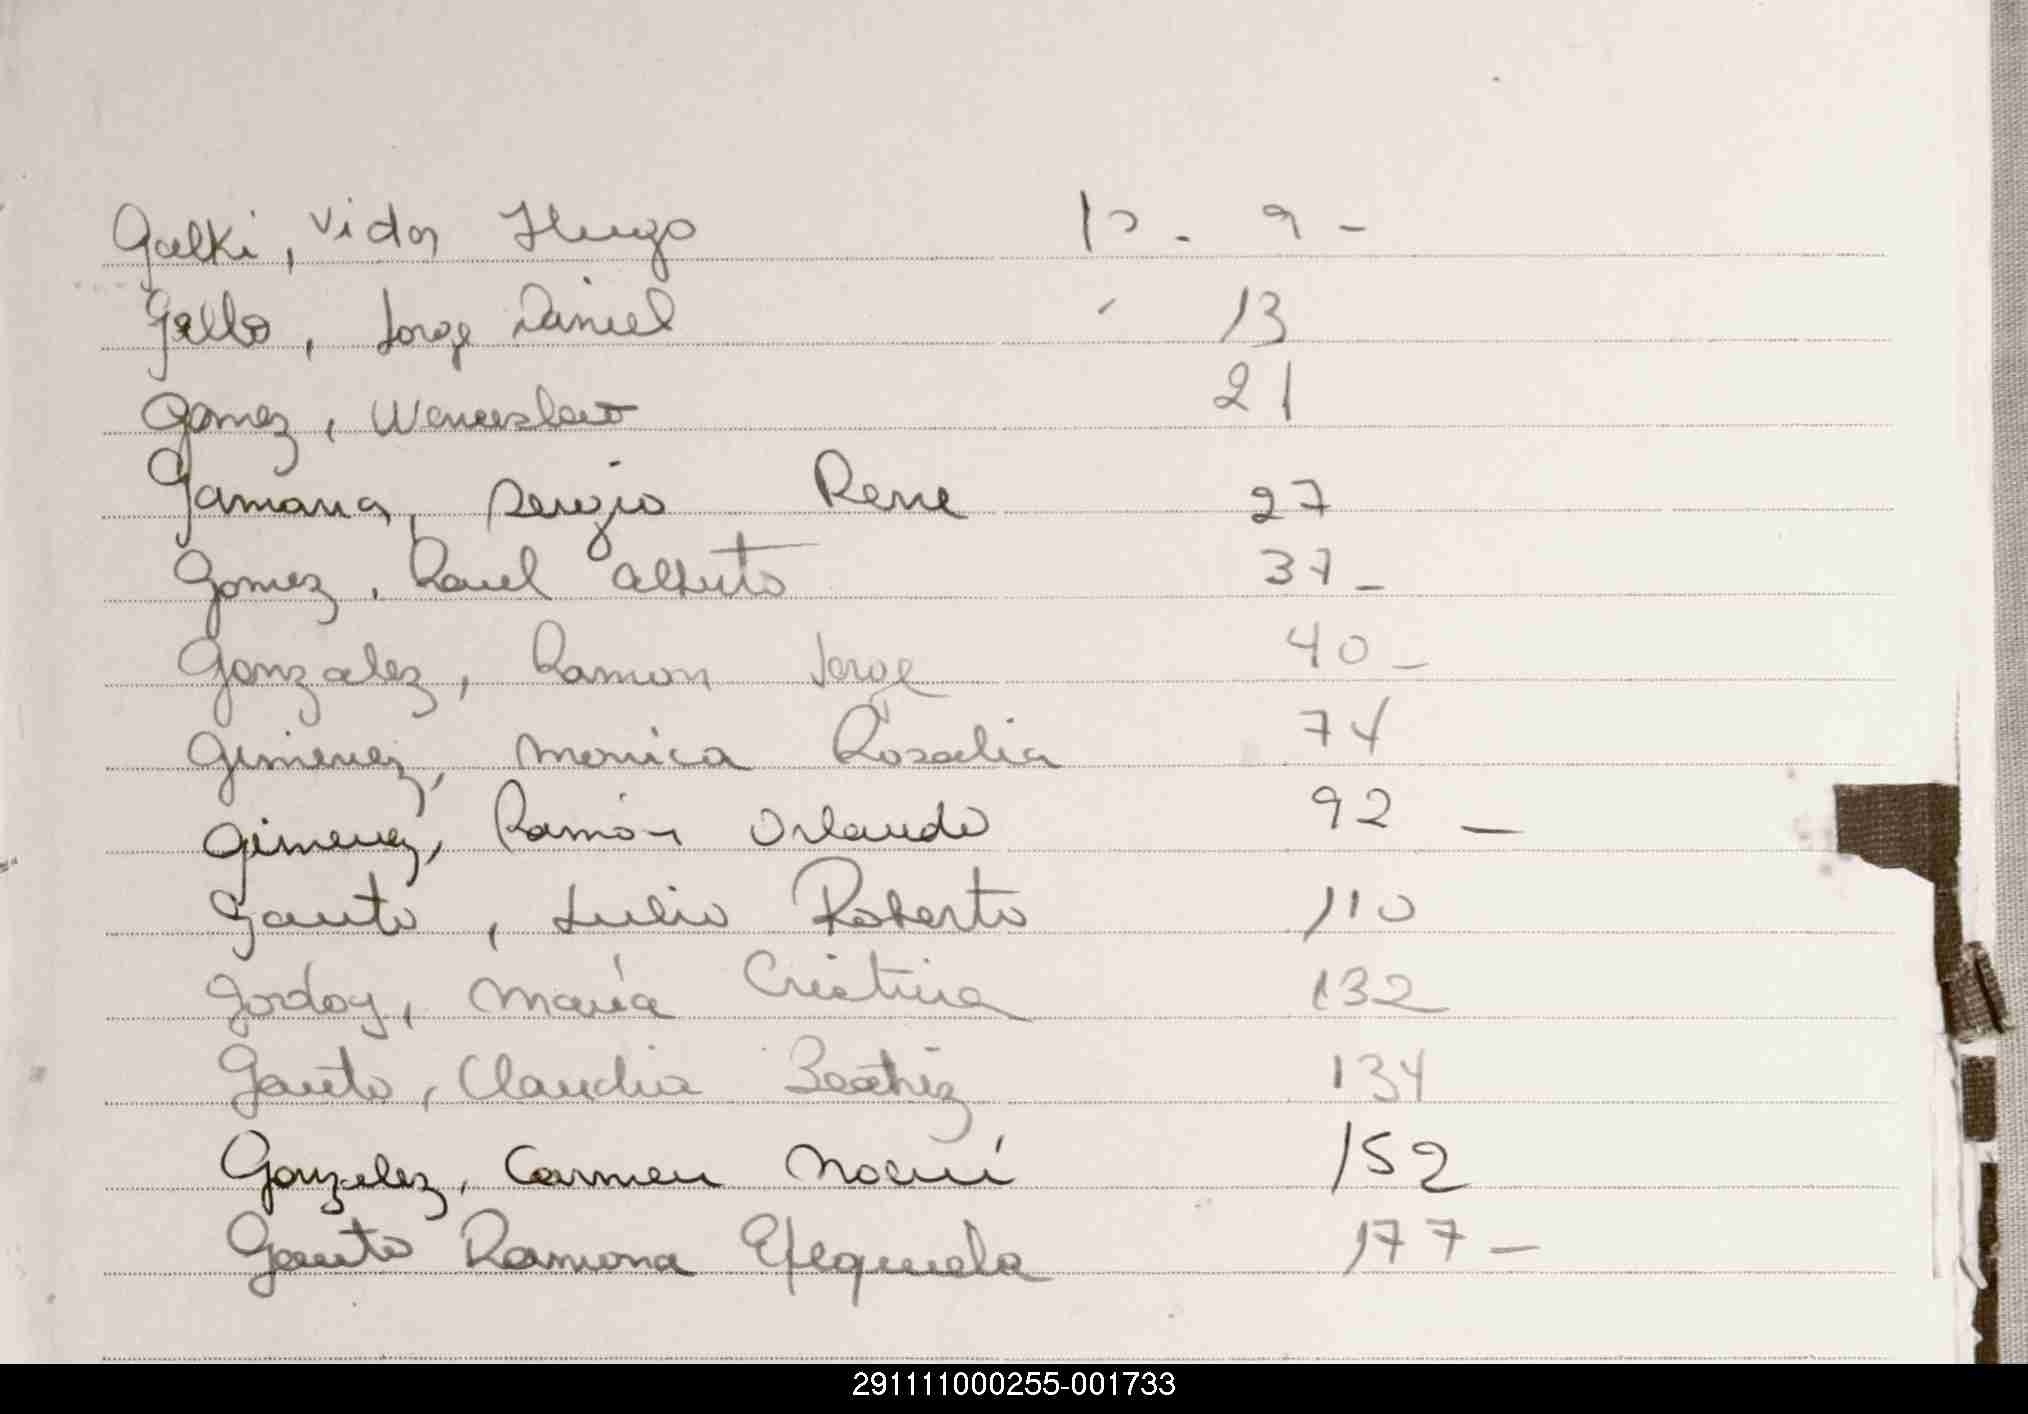 Galki, Victor Hugo 10 . 9 -
Gallo, Jorge Daniel 13
Gomez, Wenceslao 21
Gamarra, Sergio Rene 27
Gomez, Raul Alberto 37 -
Gonzalez, Ramon Jorge 40 -
Gimenez, Monica Rosalia 74
Gimenez, Ramón Orlando 92 -
Gauto, Julio Roberto 110
Godoy, María Cristina 132
Gauto, Claudia Beatriz 134
Gonzalez, Carmen Noemí 152
Gauto Ramona 177 -
291111000255-001733